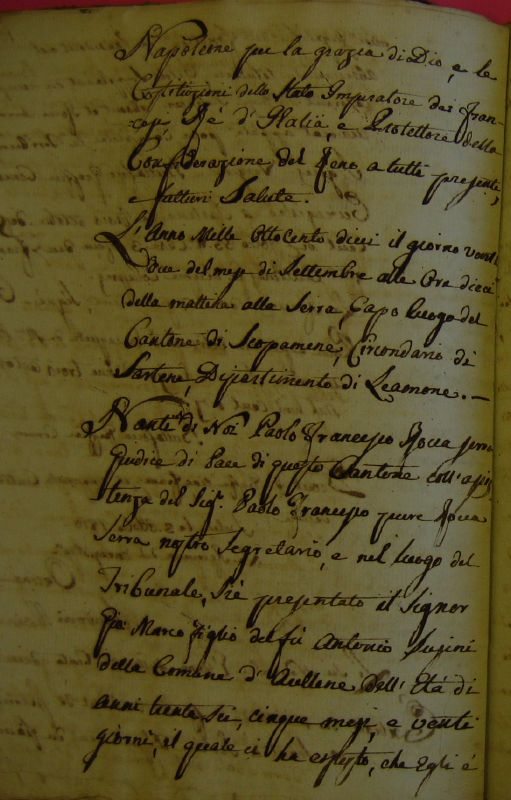 Napoleone per la grazia di Dio, e le
Costituzioni dello Stato Imperatore dei Fran-
cesi Rè d'Italia, e Protettore della
Confederazione del Reno, a tutti presenti,
e futturi Salute.
L'Anno Mille Ottocento dieci il giorno venti
due del mese di Settembre alle Ore dieci
della mattina alla Serra, Capo luogo del
Cantone di Scopamene, Circondario di
Sartene, Dipartimento di Leamone. —
Nanti di Noi Paolo Francesco Rocca Serra
Giudice di Pace di questo Cantone coll'assis
tenza del Sigr. Paolo Francesco pure Rocca
Serra nostro Segretario, e nel luogo del
Tribunale, Si è presentato il Signor
Gio: Marco figlio del fù Antonio Susini
della Comune d'Aullene dell'Età di
anni trenta sei, cinque mesi, e venti
giorni, il quale ci ha esposto, che Egli è